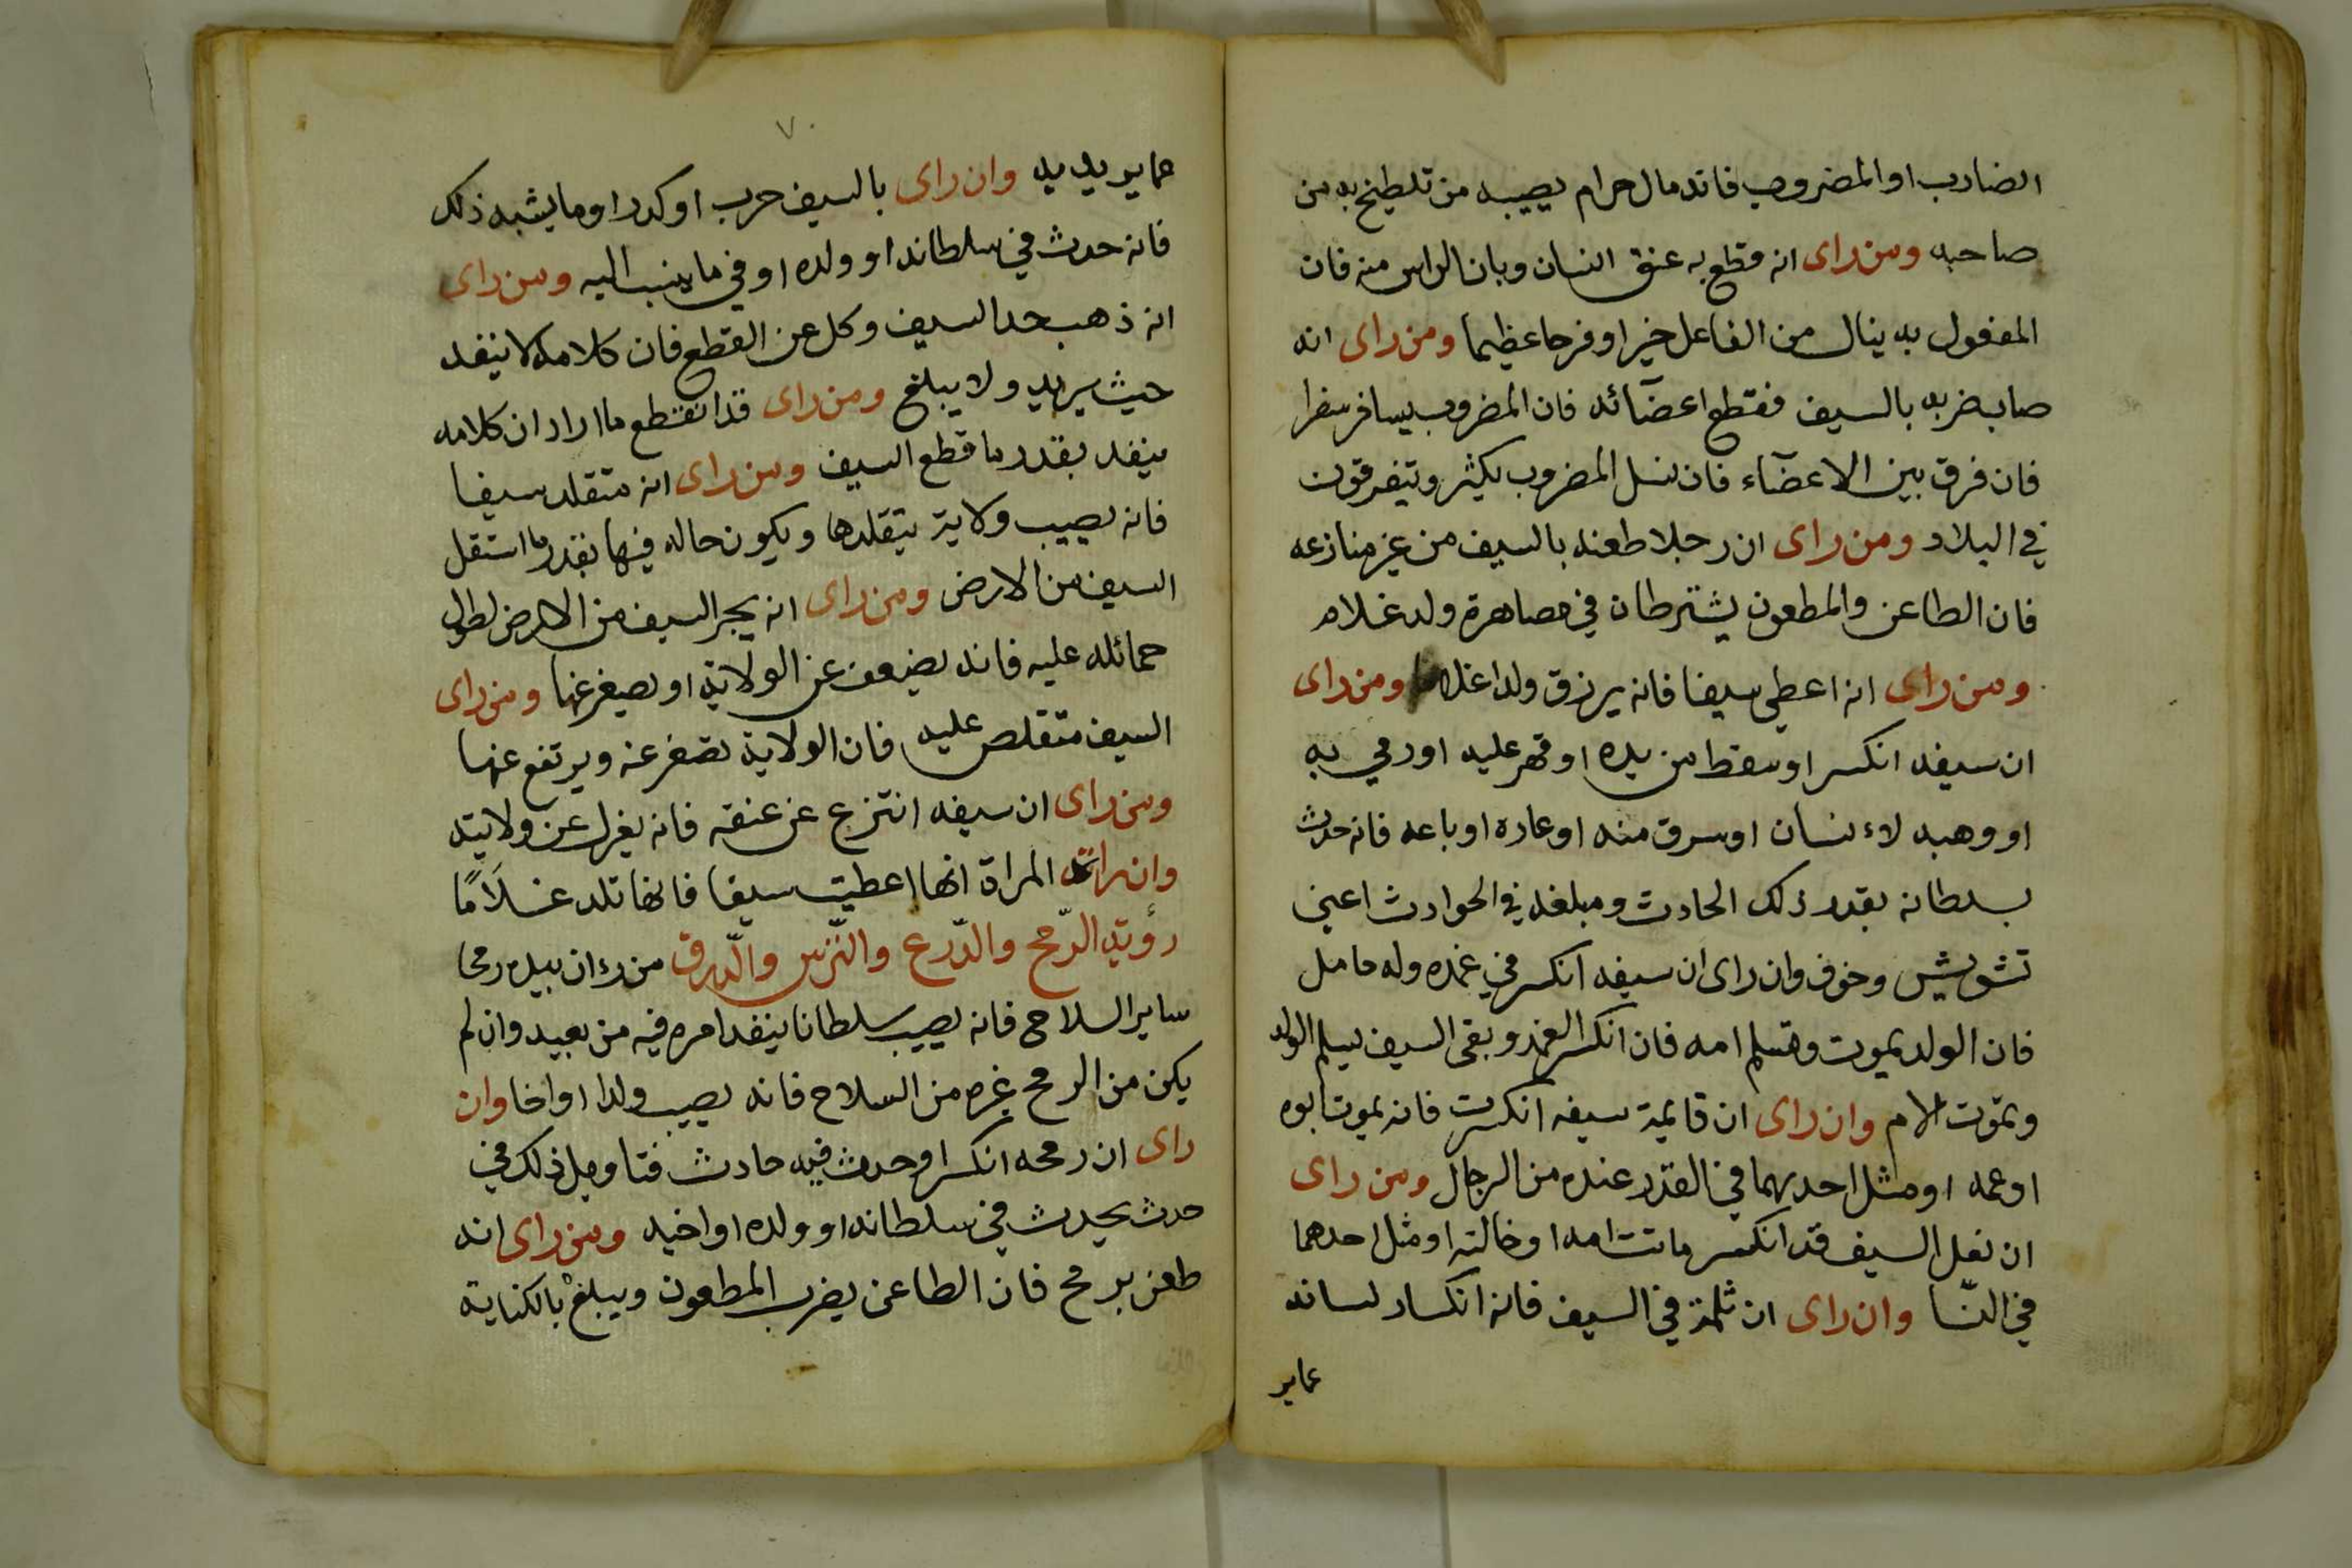 الضارب او المضروب فانه مال حرام يصيبه من تلطيخ به من
صاحبه ومن راى انه قطع به عنق انسان وبان الراس منه فان
المفعول به ينال من الفاعل خيرا وفرحا عظيما ومن راى انه
صابه ضربه بالسيف فقطع اعضآئه فان المضروب يسافر سفرا
فان فرق بين الاعضآء فان نسل المضروب يكثير وتيفرقون
في البلاد ومن راى ان رجلا طعنه بالسيف من غير منازعه
فان الطاعن والمطعون يشترطان في مصاهرة ولد غلام
ومن راى انه اعطى سيفا فانه يرزق ولدا غلاما ومن راى
ان سيفه انكسر او سقط من يده او قهر عليه او رمي به
او وهبه لاءنسان او سرق منه او عاره او باعه فانه حدث
بسلطانه بقدر ذلك الحادث ومبلغه في الحوادث اعني
تشويش وخوف وان راى ان سيفه انكسر في غمده وله حامل
فان الولد يموت وتسلم امه فان انكسر الغمد وبقى السيف يسلم الولد
وتموت الام وان راى ان قايمة سيفه انكسرت فانه يموت ابوه
او عمه او مثل احديهما في القدر عنده من الرجال ومن راى
ان نعل السيف قد انكسر ماتت امه او خالته او مثل احدهما
في النّسا وان راى ان ثلمة في السيف فانه انكسار لسانه
عماير
٧٠
عماير يد به وان راى بالسيف حرب او كدر او ما يشبه ذلك
فانه حدث في سلطانه او ولده او في ما ينسب اليه ومن راى
انه ذهب حد السيف وكل عن القطع فان كلامه لا ينفد
حيث يريد ولا يبلغ ومن راى قد انقطع ما اراد ان كلامه
ينفد بقدر ما قطع السيف ومن راى انه متقلد سيفا
فانه يصيب ولاية يتقلدها ويكون حاله فيها بقدر ما استقل
السيف من الارض ومن راى انه يجر السيف من الارض لطول
حمائله عليه فانه يضيعف عن الولاية او يصيغر عنها ومن راى
السيف متقلص عليه فان الولاية تصغر عنه ويرتفع عنها
ومن راى ان سيفه انتزع عن عنقه فانه يغزل عن ولايته
وان رات المراة انها اعطيت سيفا فانها تلد غلَامًا
رؤية الرّمح والدّرع والتّرس والدّرق من رءان بيده رمحا
ساير السلاح فانه يصيب سلطانا ينفد امره فيه من بعيد وان لم
يكن من الرمح غيره من السلاح فانه يصيب ولدا او اخا وان
راى ان رمحه انكسر او حدث فيه حادث فتاويل ذلك في
حدث يحدث في سلطانه او ولده او اخيه ومن راى انه
طعن برمح فان الطاعن يضرب المطعون ويبلغ بالكناية